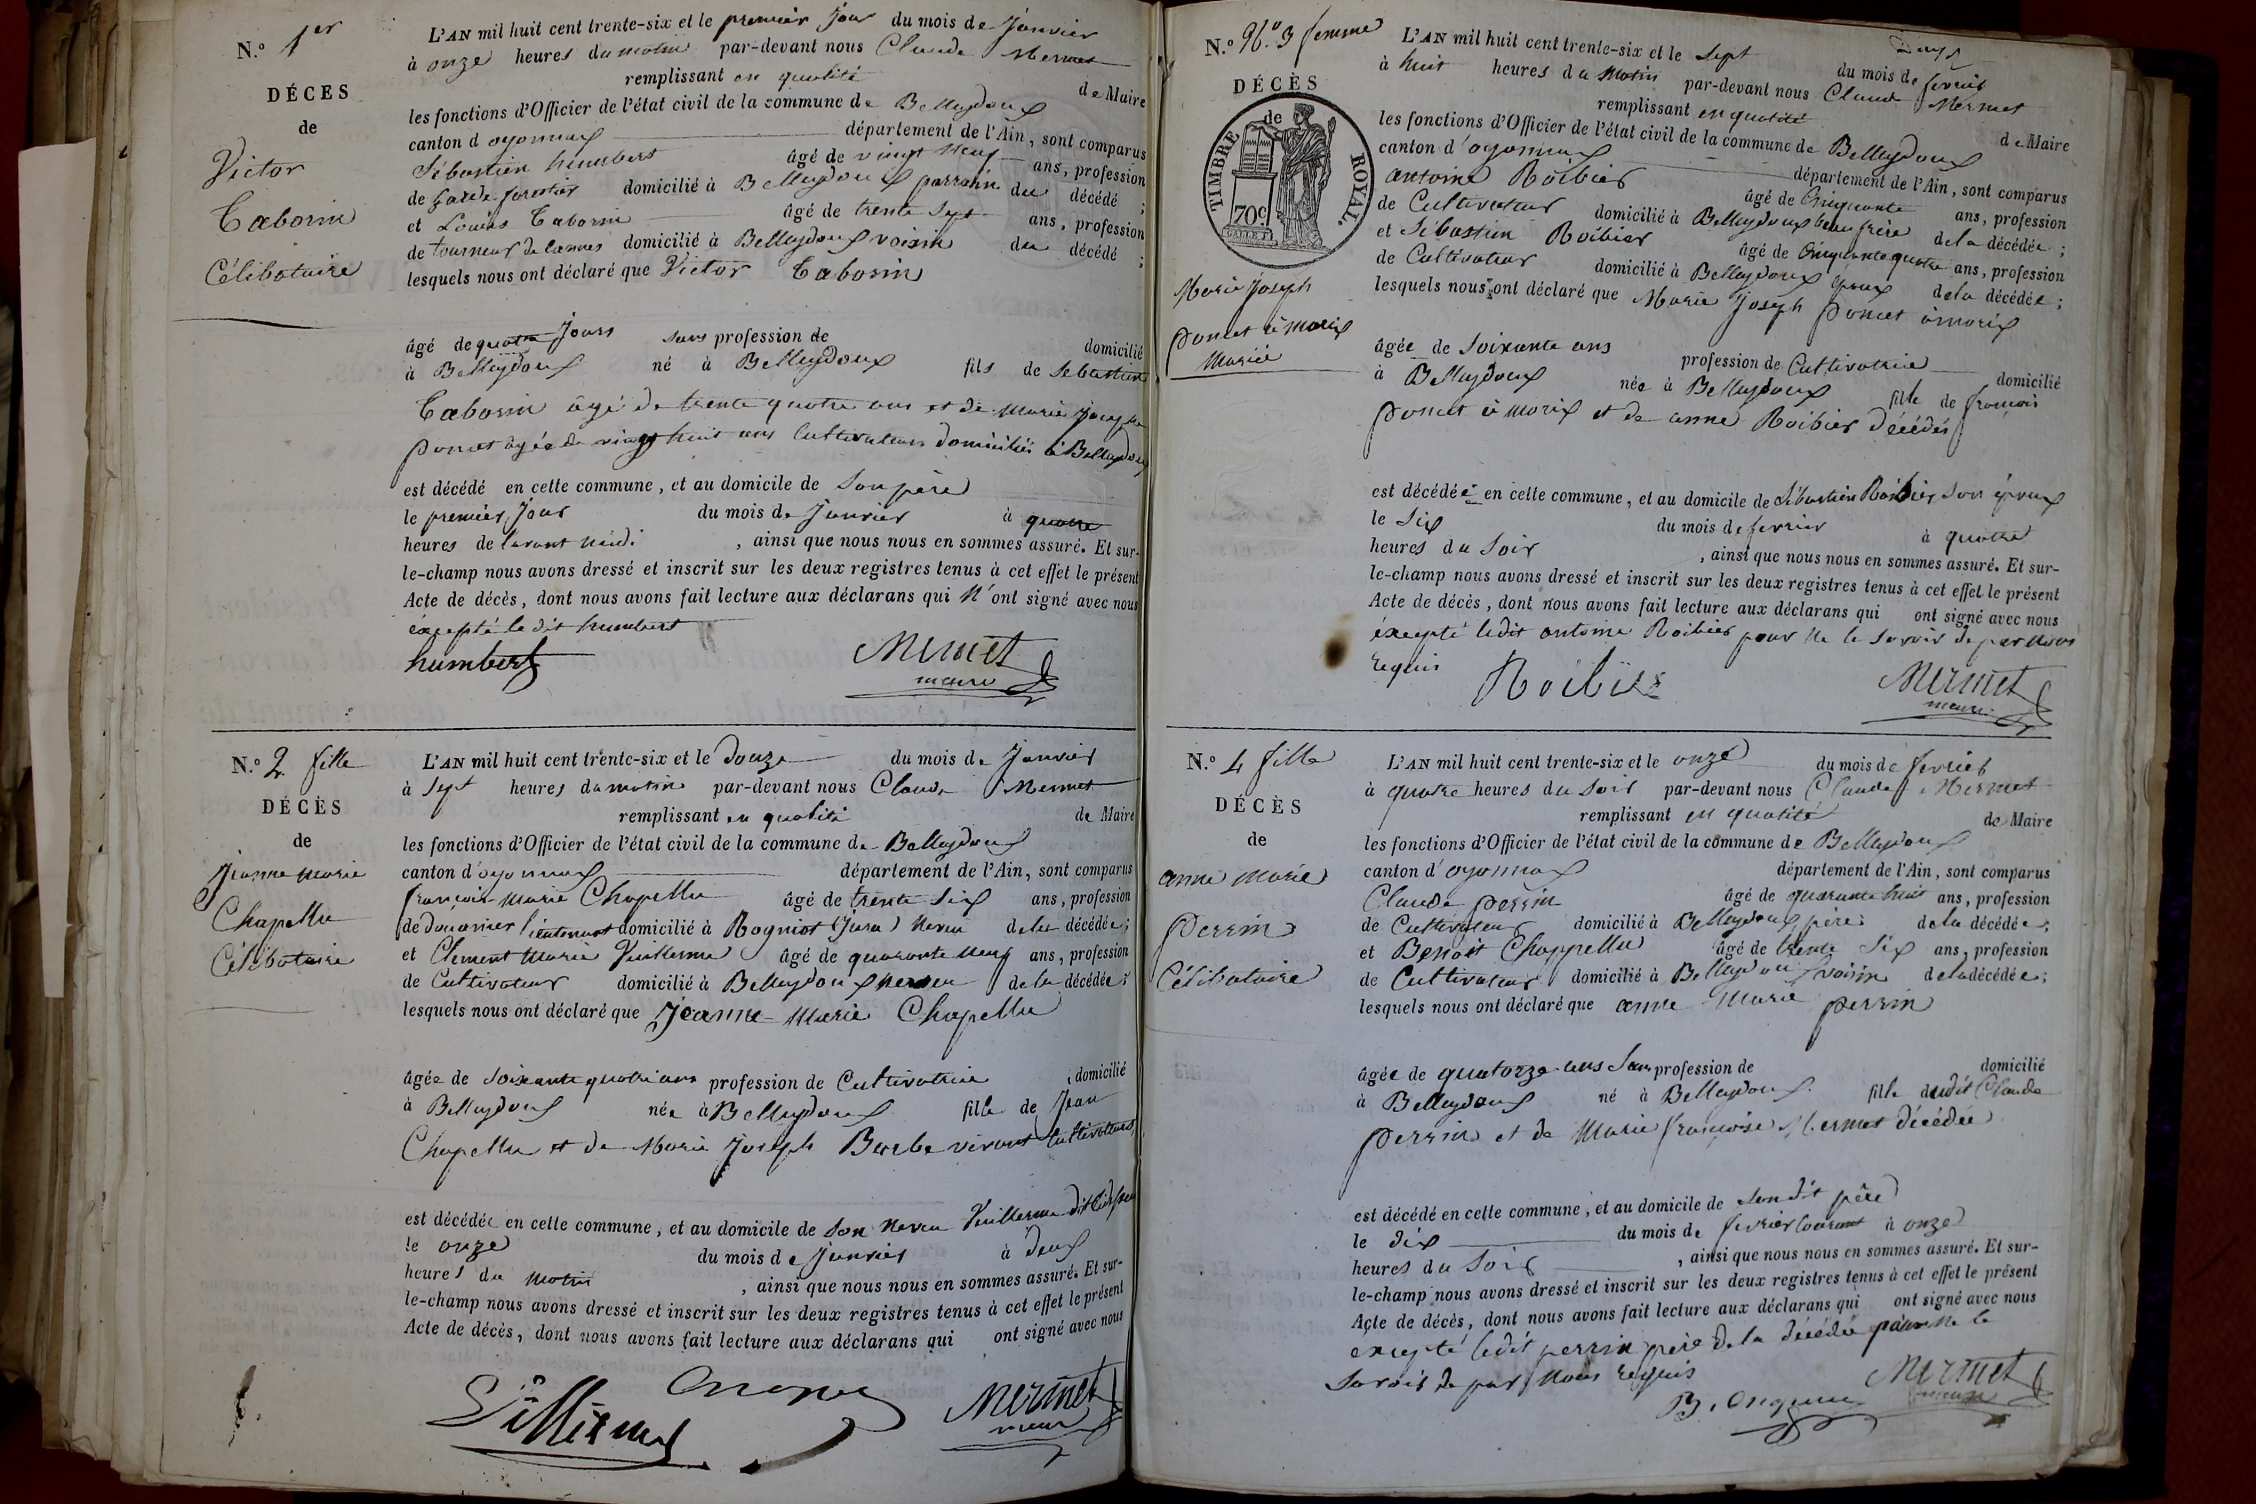 N.º 1er
DÉCES
de
Victor
Taborin
Célibataire
L'AN mil huit cent trente-six et le premier Jour du mois de Janvier
à onze heures du matin par-devant nous Claude Mermet
remplissant en qualité de Maire
les fonctions d'Officier de l'état civil de la commune de Belleydoux
canton d'oyonnax département de l'Ain, sont comparus
Sébastien humbert âgé de vingt neuf ans, profession
de garde forestier domicilié à Belleydoux parrain du décédé ;
et Louis Taborin âgé de trente sept ans, profession
de tourneur de cannes domicilié à Belleydoux voisin du décédé ;
lesquels nous ont déclaré que Victor Taborin
âgé de quatre Jours sans profession de domicilié
à Belleydoux né à Belleydoux fils de Sébastien
Taborin âgé de trente quatre ans et de Marie Josephe
Poncet âgée de vingt huit ans Cultivateurs domiciliés à Belleydoux
est décédé en cette commune, et au domicile de Son père
le premier Jour du mois de Janvier à quatre
heures de lavant midi , ainsi que nous nous en sommes assuré. Et sur-
le-champ nous avons dressé et inscrit sur les deux registres tenus à cet effet le présent
Acte de décès, dont nous avons fait lecture aux déclarans qui N'ont signé avec nous
éxcepté le dit humbert
humbert Mermet
maire
N.º 2 fille
DÉCÈS
de
Jeanne Marie
Chapellu
Célibataire
L'AN mil huit cent trente-six et le douze du mois de Janvier
à Sept heures du matin par-devant nous Claude Mermet
remplissant en qualité de Maire
les fonctions d'Officier de l'état civil de la commune de Belleydoux
canton d'oyonnax département de l'Ain, sont comparus
françois Marie Chapellu âgé de trente Six ans, profession
de douanier lieutenant domicilié à Rogniat (Jura) Neveu de la décédée ;
et Clement Marie Vuillerme âgé de quarante neuf ans, profession
de Cultivateur domicilié à Belleydoux neveu de la décédée ;
lesquels nous ont déclaré que Jeanne-Marie Chapellu
âgée de soixante quatre ans profession de Cultivatrice domicilié
à Belleydoux née à Belleydoux fille de Jean
Chapellu et de Marie Joseph Barbe vivant Cultivateurs
est décédée en cette commune, et au domicile de Son Neveu Vuillerme dit
le onze du mois de Janvier à deux
heures du matin , ainsi que nous nous en sommes assuré. Et sur-
le-champ nous avons dressé et inscrit sur les deux registres tenus à cet effet le présent
Acte de décès, dont nous avons fait lecture aux déclarans qui ont signé avec nous
Mermet
maire
N.º 3 femme
DÉCÈS
de
TIMBRE ROYAL.
70c
Marie Joseph
Poncet à morix
Mariée
L'AN mil huit cent trente-six et le Sept du mois de fevrier
à huit heures du Matin par-devant nous Claude Mermet
remplissant en qualité de Maire
les fonctions d'Officier de l'état civil de la commune de Belleydoux
canton d'oyonnax département de l'Ain, sont comparus
antoine Roibier âgé de Cinquante ans, profession
de Cultivateur domicilié à Belleydoux beau frère de la décédée ;
et Sébastien Roibier âgé de Cinquante quatre ans, profession
de Cultivateur domicilié à Belleydoux époux de la décédée ;
lesquels nous ont déclaré que Marie Joseph Poncet à morix
âgée de Soixante ans profession de Cultivatrice domicilié
à Belleydoux née à Belleydoux fille de françois
Poncet à morix et de anne Roibier décédés
est décédée en cette commune, et au domicile de Sébastien Roibier, son époux
le Six du mois de fevrier à quatre
heures du Soir , ainsi que nous nous en sommes assuré. Et sur-
le-champ nous avons dressé et inscrit sur les deux registres tenus à cet effet le présent
Acte de décès, dont nous avons fait lecture aux déclarans qui ont signé avec nous
éxcepté ledit antoine Roibier pour ne le Savoir de par nous
requis Roibier Mermet
maire
N.º 4 fille
DÉCÈS
de
anne Marie
Perrin
Célibataire
L'AN mil huit cent trente-six et le onze du mois de fevrier
à quatre heures du Soir par-devant nous Claude Mermet
remplissant en qualité de Maire
les fonctions d'Officier de l'état civil de la commune de Belleydoux
canton d'oyonnax département de l'Ain, sont comparus
Claude perrin âgé de quarante huit ans, profession
de Cultivateur domicilié à Belleydoux père de la décédée ;
et Benoit Chappellu âgé de trente Six ans, profession
de Cultivateur domicilié à Belleydoux voisin de la décédée ;
lesquels nous ont déclaré que anne Marie perrin
âgée de quatorze ans Sans profession de domicilié
à Belleydoux né à Belleydoux fille dudit Claude
Perrin et de Marie françoise Mermet décédée
est décédé en cette commune, et au domicile de Son dit père
le dix du mois de fevrier Courant à onze
heures du Soir , ainsi que nous nous en sommes assuré. Et sur-
le-champ nous avons dressé et inscrit sur les deux registres tenus à cet effet le présent
Acte de décès, dont nous avons fait lecture aux déclarans qui ont signé avec nous
excepté ledit perrin père de la décédée pour ne le
Savoir de par Nous requis Mermet
maire